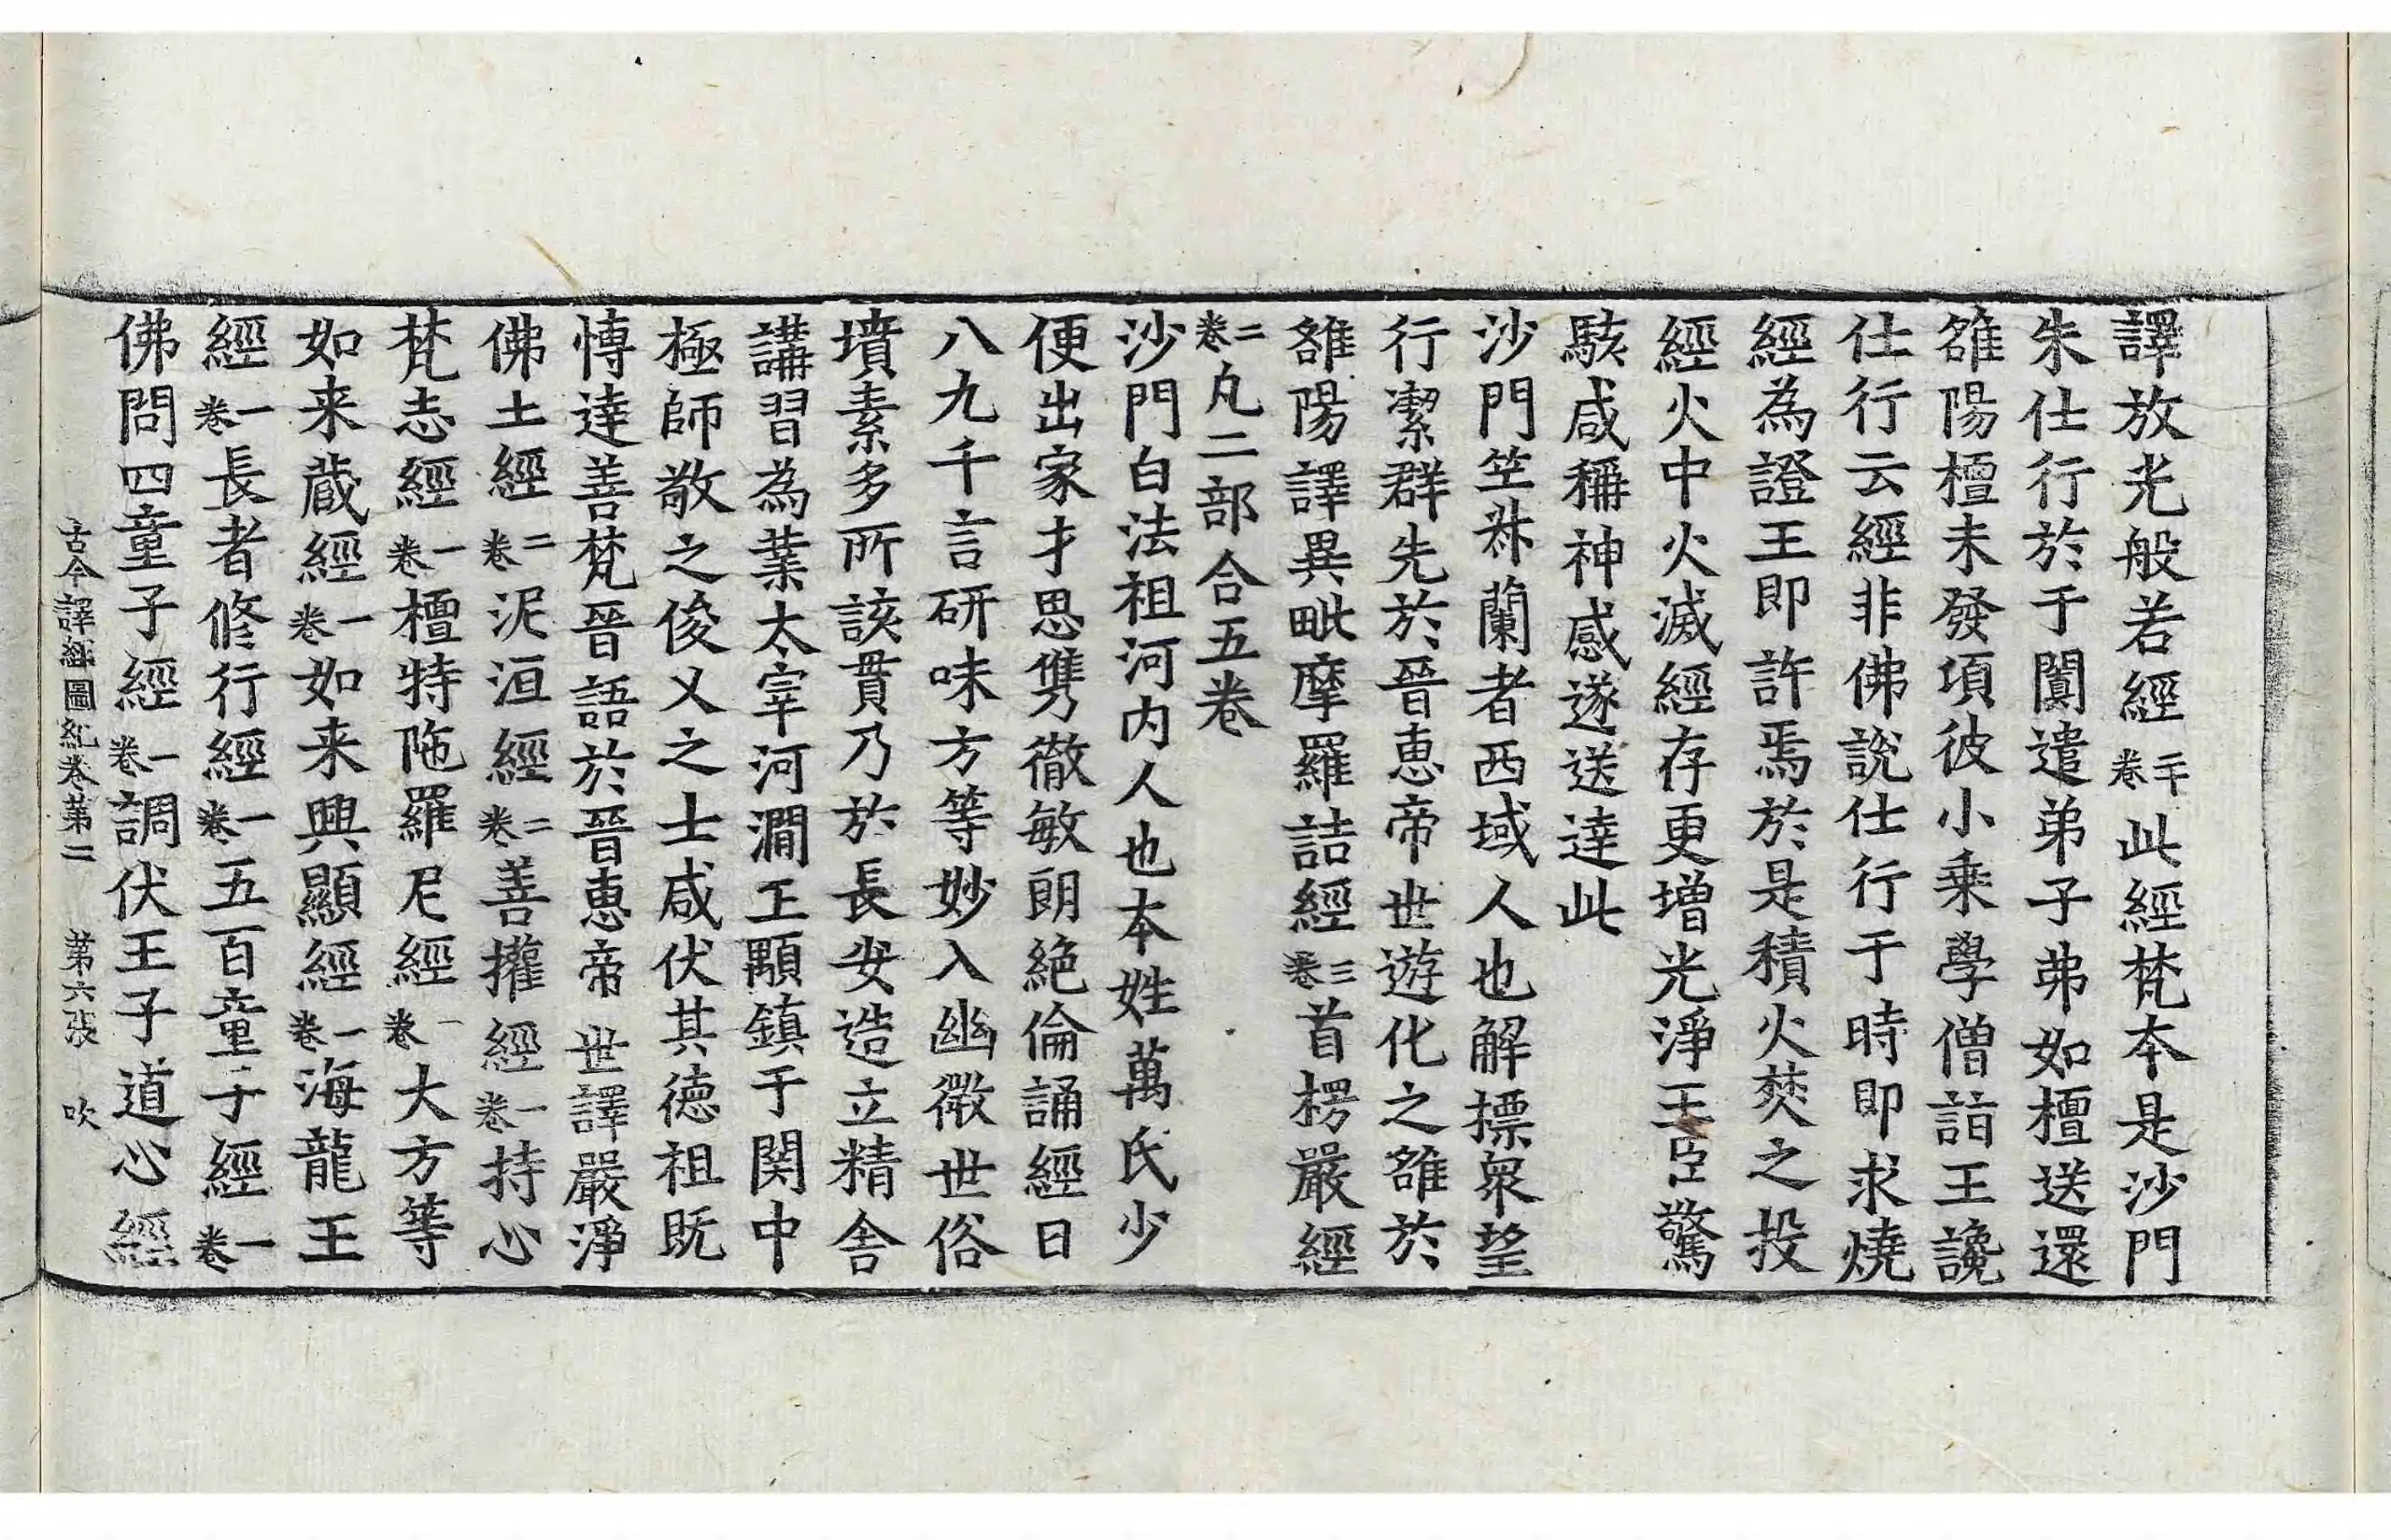 譯放光般若經二十卷此經梵本是沙門
朱仕行於于闐遣弟子弗如檀送還
雒陽檀未發項彼小乘學僧詣王讒
仕行云經非佛說仕行于時即求燒
經為證王即許焉於是積火焚之投
經火中火滅經存更增光淨王臣驚
駭咸稱神感遂送達此
沙門竺叔蘭者西域人也解摽衆望
行潔群先於晉惠帝世遊化之雒於
雒陽譯異毗摩羅詰經三卷首楞嚴經
二卷凡二部合五卷
沙門白法祖河内人也本姓萬氏少
便出家才思雋徹敏朗絕倫誦經日
八九千言研味方等妙入幽微世俗
墳素多所該貫乃於長安造立精舍
講習為業太宰河澗王顒鎮于関中
極師敬之俊乂之士咸伏其德祖既
博達善梵晉語於晉惠帝世譯嚴淨
佛土經二卷泥洹經二卷善權經一卷持心
梵志經一卷檀特陁羅尼經一卷大方等
如来蔵經一卷如来興顯經一卷海龍王
經一卷長者修行經一卷五百童子經一卷
佛問四童子經一卷調伏王子道心經
古今譯經圖紀卷第二 第六張 吹